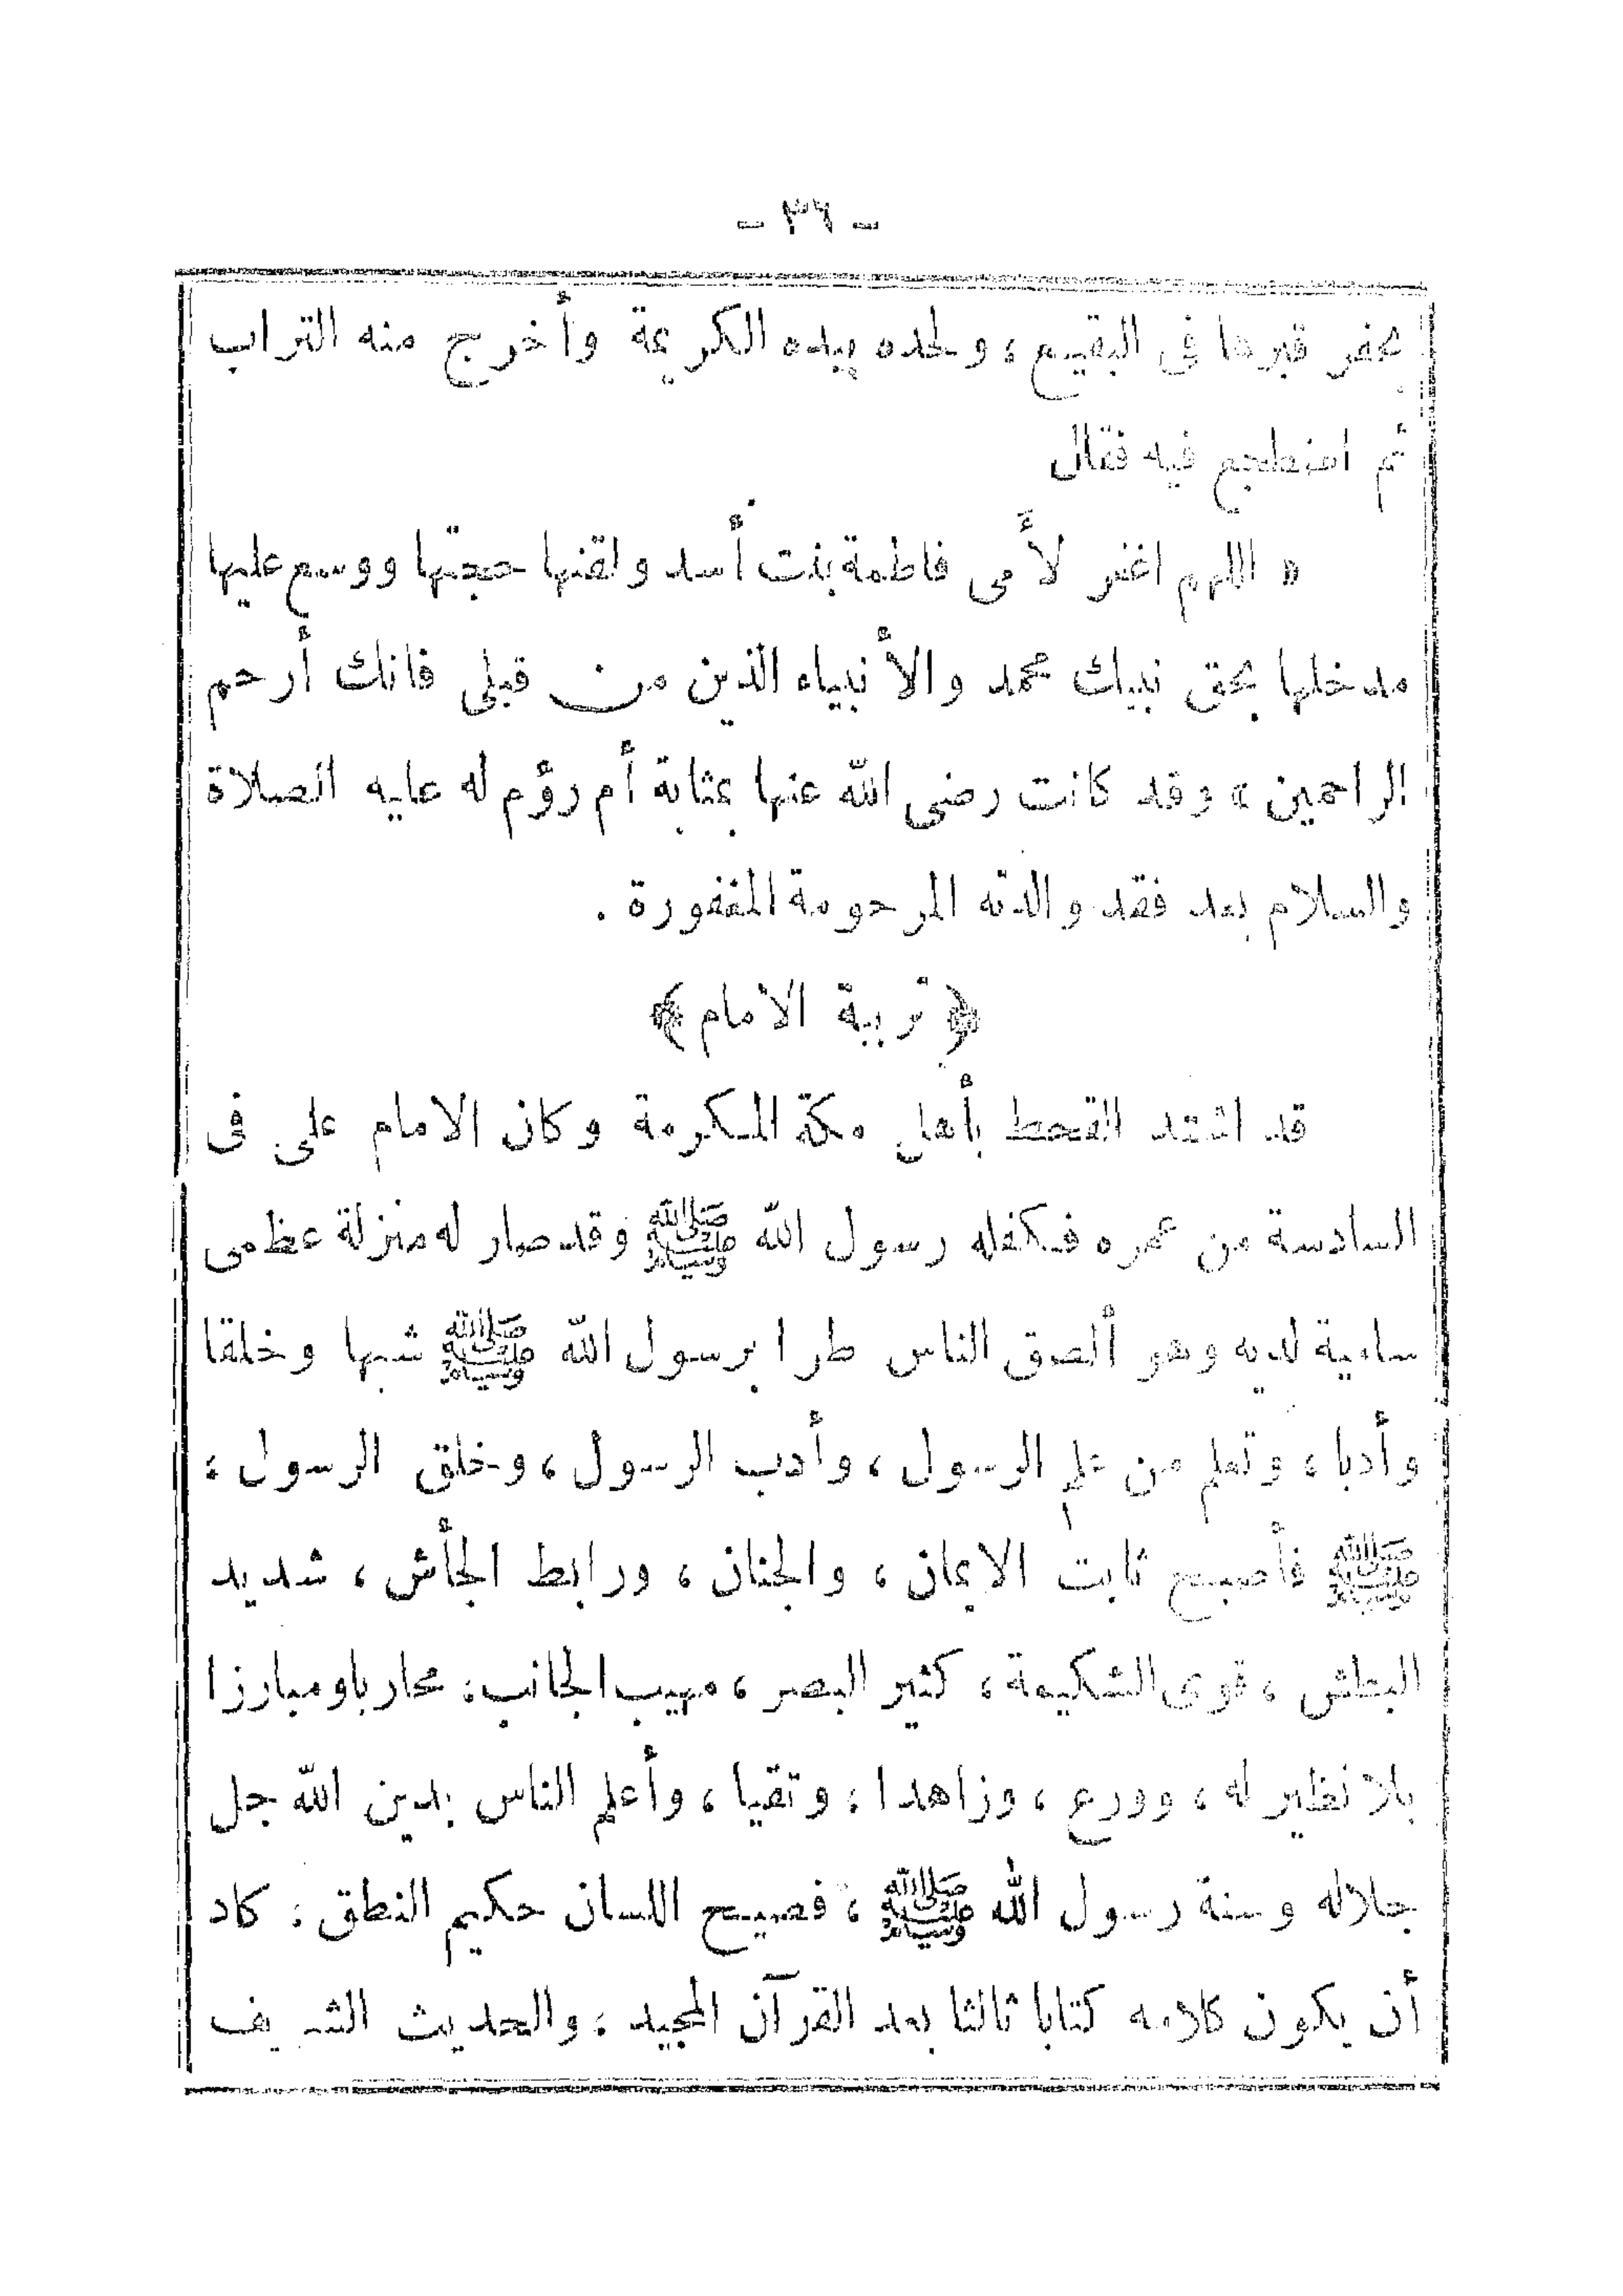 - ٣٦ -
بحفر قبرها فى البقيع، ولحده بيده الكريمة وأخرج منه التراب
ثم اضطجع فيه فقال
« اللهم اغفر لأمى فاطمة بنت أسد ولقنها حجتها ووسع عليها
مدخلها بحق نبيك محمد والأنبياء الذين من قبلى فانك أرحم
الراحمين » وقد كانت رضى الله عنها بمثابة أم رؤم له عليه الصلاة
والسلام بعد فقد والدته المرحومة المغفورة .
﴿ تربية الامام ﴾
قد اشتد القحط بأهل مكة المكرمة وكان الامام على فى
السادسة من عمره فكفله رسول الله ﷺ وقد صار له منزلة عظمى
سامية لديه وهو ألصق الناس طرا برسول الله ﷺ شبها وخلقا
وأدبا، وتعلم من علم الرسول، وأدب الرسول، وخلق الرسول،
ﷺ فأصبح ثابت الايمان، والجنان، ورابط الجأش، شديد
البطش، قوى الشكيمة، كثير البصر، مهيب الجانب، محاربا ومبارزا
بلا نظير له، وورع، وزاهدا، وتقيا، وأعلم الناس بدين الله جل
جلاله وسنة رسول الله ﷺ، فصيح اللسان حكيم النطق، كاد
أن يكون كلامه كتابا ثالثا بعد القرآن المجيد، والحديث الشريف